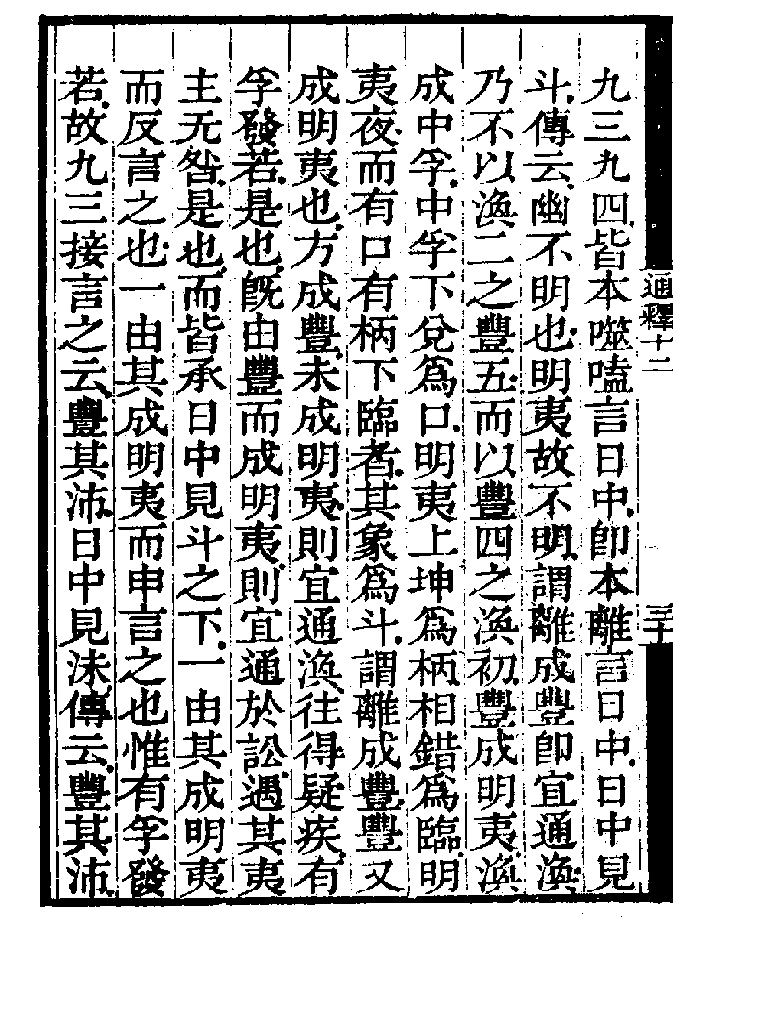 九三九四皆本噬嗑言日中卽本離言日中日中見
斗傳云幽不明也明夷故不明謂離成豐卽宜通渙
乃不以渙二之豐五而以豐四之渙初豐成明夷渙
成中孚中孚下兌爲口明夷上坤爲柄相錯爲臨明
夷夜而有口有柄下臨者其象爲斗謂離成豐豐又
成明夷也方成豐未成明夷則宜通渙往得疑疾有
孚發若是也旣由豐而成明夷則宜通於訟遇其夷
主无咎是也而皆承日中見斗之下一由其成明夷
而反言之也一由其成明夷而申言之也惟有孚發
若故九三接言之云豐其沛日中見沬傳云豐其沛
通釋十二